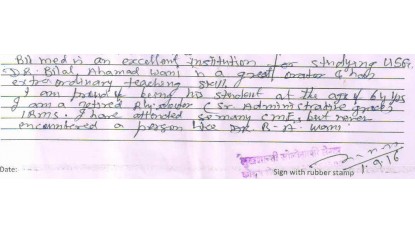 Bil med is an excellent institution for studying USG.
DR. Bilal Ahamad wani is a great orator & has
extraordinary teaching skill.
I am proud of being his student at the age of 64 yrs
I am a retired Rly. doctor (Sr Administrative grade)
IRMS. I have attended so many CME, but never
encountered a person like DR. B. A. wani.
Date:
Sign with rubber stamp
1.9.16